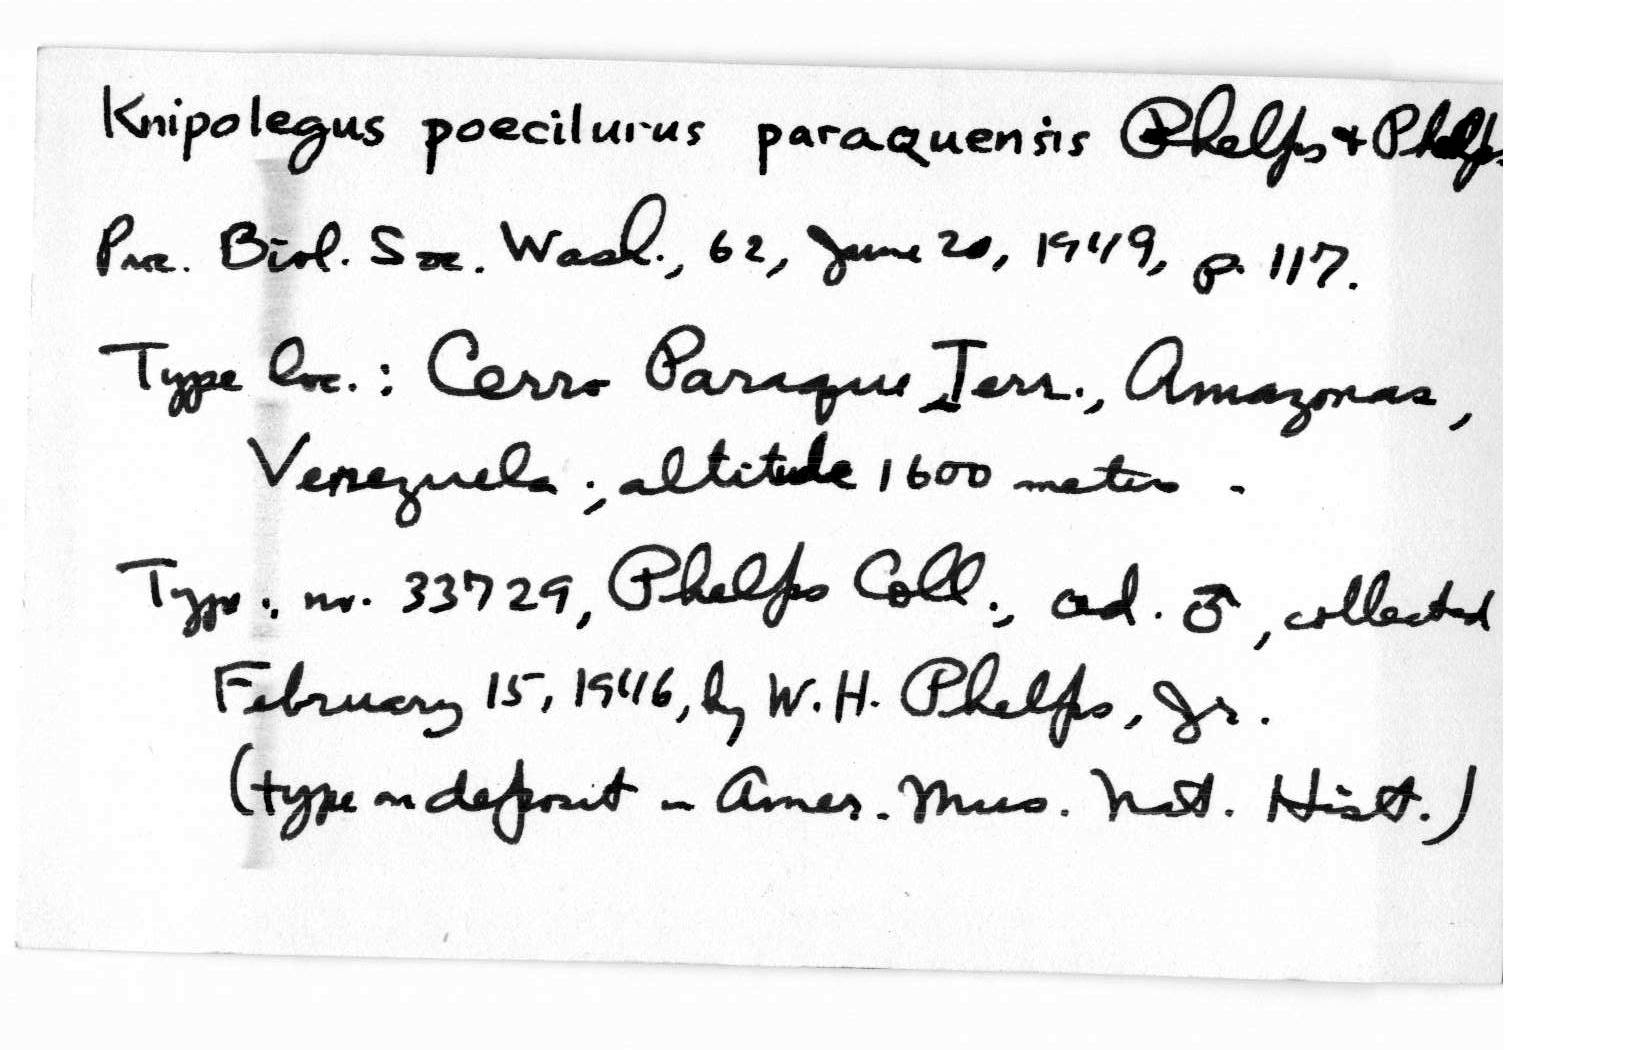 Knipolegus poecilurus paraquensis Phelps + Phelps
Proc. Biol. Soc. Wash., 62, June 20, 1949, p. 117.
Type loc.: Cerro Paraque, Terr., Amazonas,
Venezuela; altitude 1600 meters.
Type: no. 33729, Phelps Coll., ad. ♂, collected
February 15, 1946, by W. H. Phelps, Jr.
(type on deposit in Amer. Mus. Nat. Hist.)